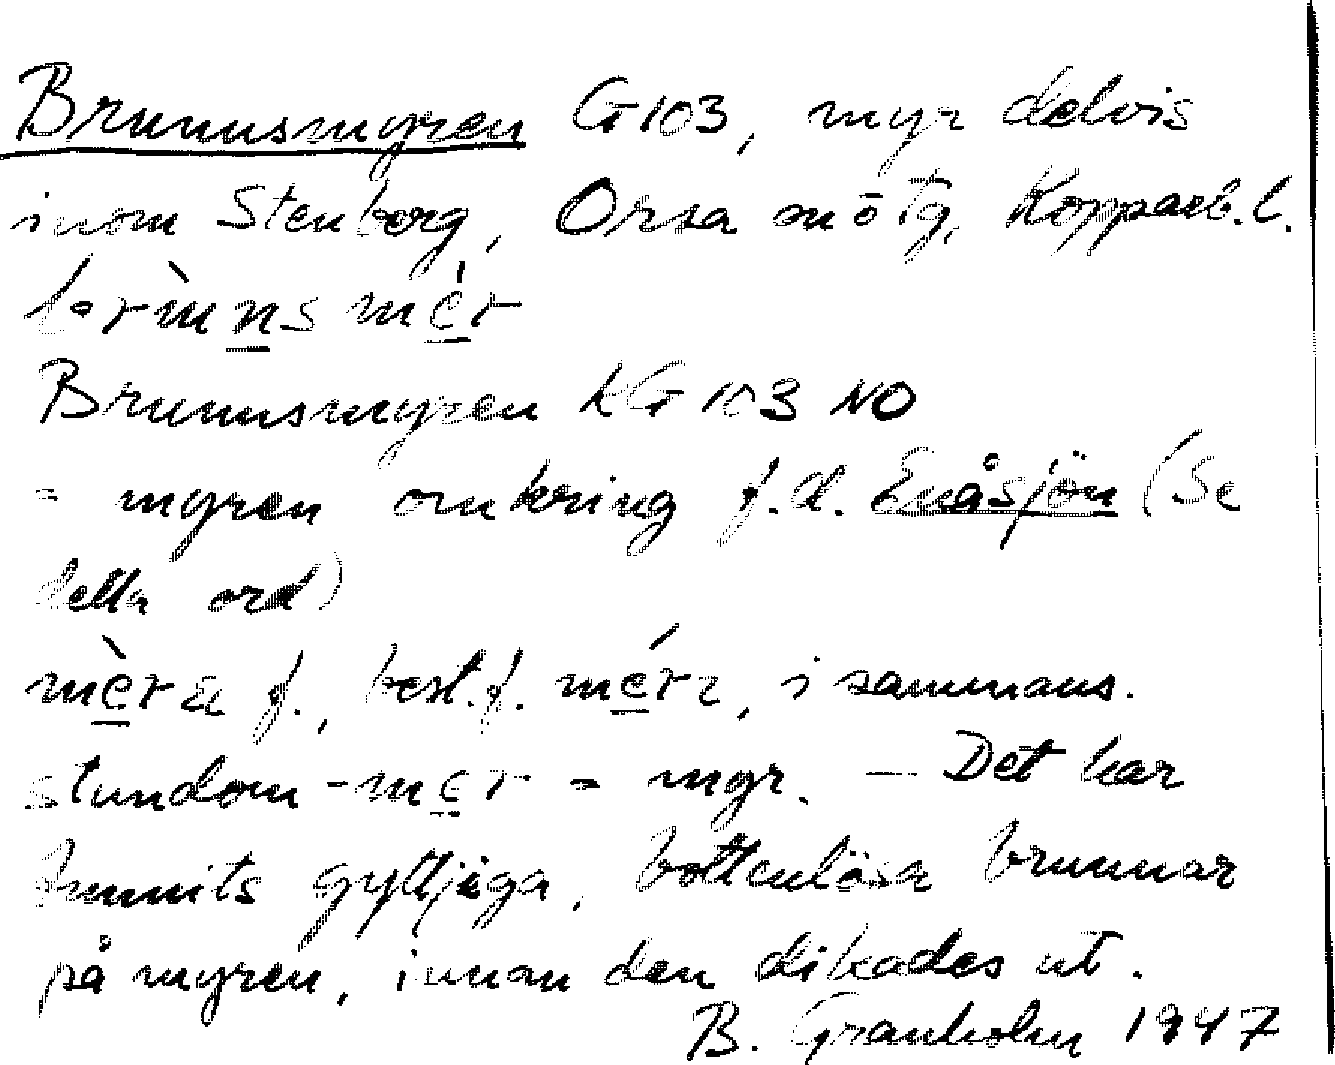 Brunnsmyren G103, myr delvis
inom Stenberg, Orsa sn ö tg, Kopparb. l.
Brunnsmyren KG 103 NO
= myren omkring f.d. Enåsjön (Se
detta ord)
f., best. f. i sammans.
stundom = myr. — Det har
funnits gyttjiga, bottenlösa brunnar
på myren, innan den dikades ut.
B. Granholm 1947